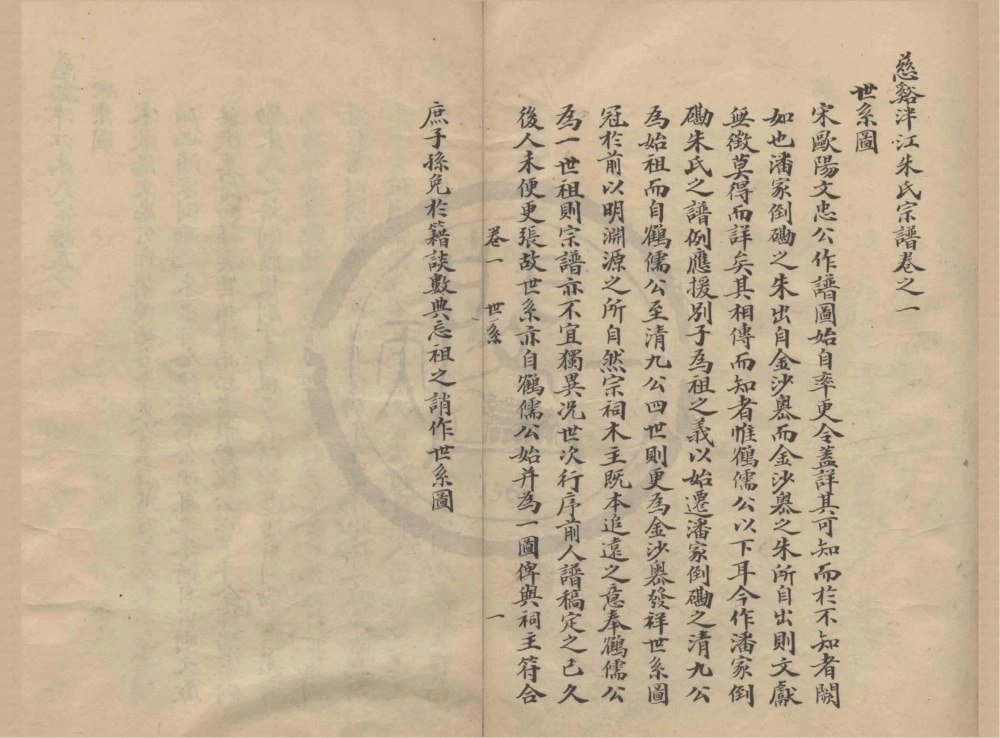 慈谿津江朱氏宗譜卷之一
世系圖
宋歐陽文忠公作譜圖始自率更令蓋詳其可知而於不知者闕
如也潘家倒磡之朱出自金沙嶴而金沙嶴之朱所自出則文獻
無徵莫得而詳矣其相傳而知者惟鶴儒公以下耳今作潘家倒
磡朱氏之譜例應援別子為祖之義以始遷潘家倒磡之清九公
為始祖而自鶴儒公至清九公四世則更為金沙嶴發祥世系圖
冠於前以明淵源之所自然宗祠木主既本追遠之意奉鶴儒公
為一世祖則宗譜亦不宜獨異況世次行序前人譜稿定之已久
後人未便更張故世系亦自鶴儒公始并為一圖俾與祠主符合
卷一 世系 一
庶子孫免於籍談數典忘祖之誚作世系圖